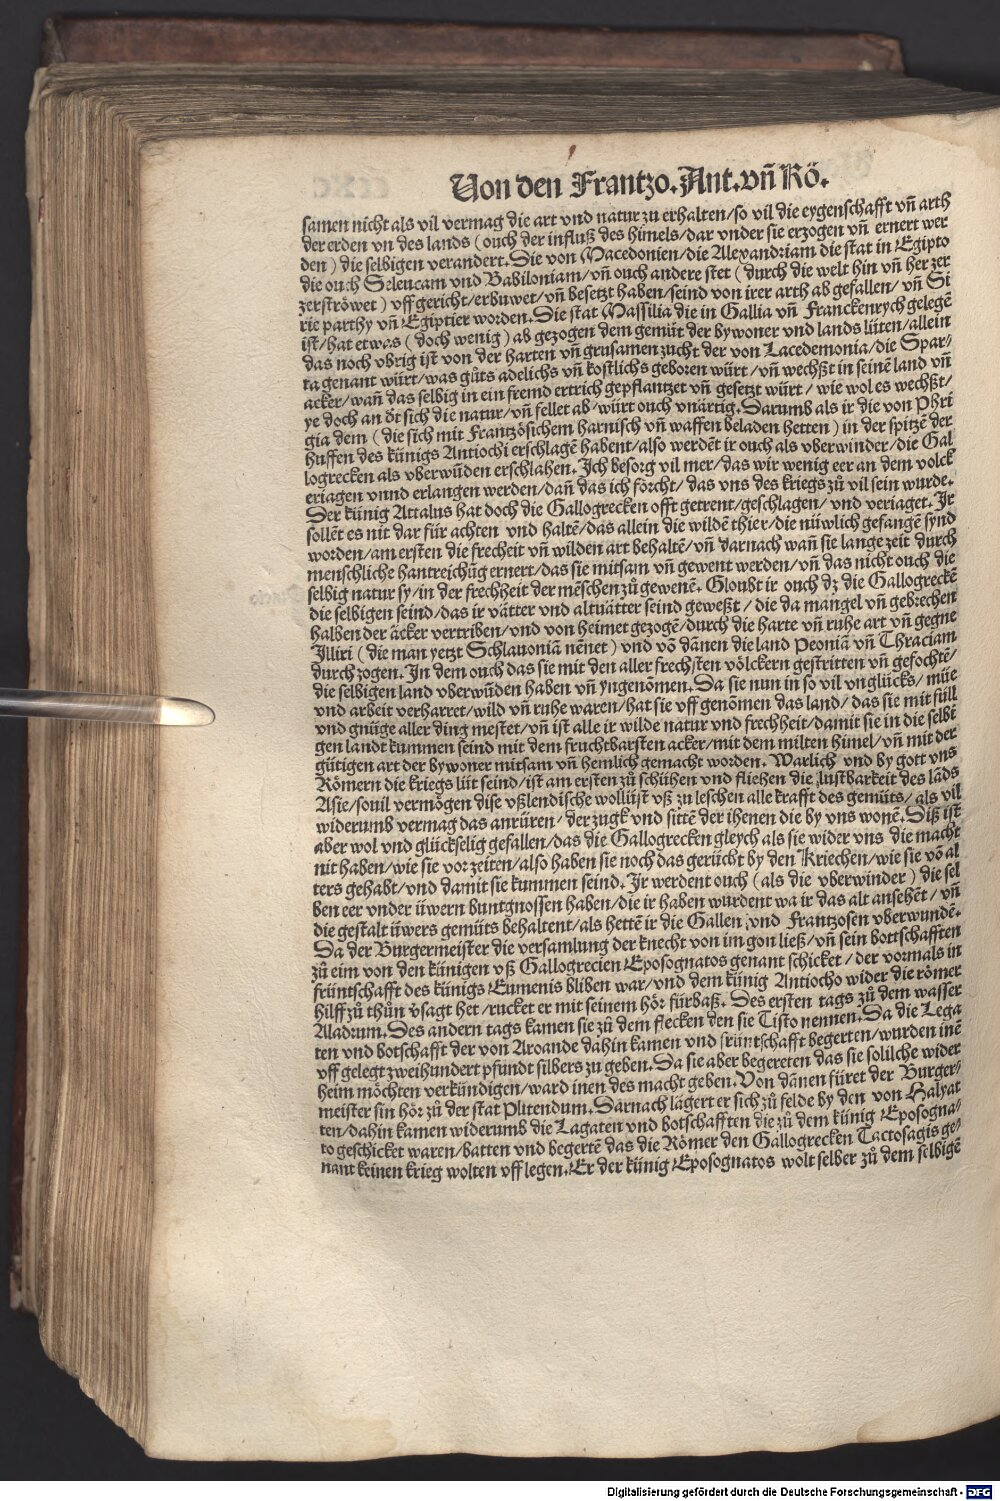 Von den Frantzo. Ant. vñ Rö.
samen nicht als vil vermag die art vnd natur zu erhalten/so vil die eygenschafft vñ arth
der erden vn des lands (ouch der influß des himels/dar vnder sie erzogen vñ ernert wer
den) die selbigen verandert. Die von Macedonien/die Alexandriam die stat in Egipto
die ouch Seleucam vnd Babiloniam/vñ ouch andere stet (durch die welt hin vñ her zer
zerströwet) vff gericht/erbuwet/vñ besetzt haben/seind von irer arth ab gefallen/vñ Si
rie parthy vñ Egiptier worden. Die stat Massilia die in Gallia vñ Franckenrych gelegẽ
ist/hat etwas (doch wenig) ab gezogen dem gemüt der bywoner vnd lands lüten/allein
das noch vbrig ist von der harten vñ grusamen zucht der von Lacedemonia/die Spar/
ta genant würt/was gůts adelichs vñ kostlichs geboren würt/vñ wechßt in seinẽ land vñ
acker/wañ das selbig in ein fremd ertrich gepflantzet vñ gesetzt würt/wie wol es wechßt/
ye doch an ðt sich die natur/vñ fellet ab/würt ouch vnärtig. Darumb als ir die von Phri
gia dem (die sich mit Frantzösichem harnisch vñ waffen beladen hetten) in der spitzẽ der
huffen des künigs Antiochi erschlagẽ habent/also werdẽt ir ouch als vberwinder/die Gal
logrecken als vberwũden erschlahen. Ich besorg vil mer/das wir wenig eer an dem volck
eriagen vnnd erlangen werden/dañ das ich förcht/das vns des kriegs zů vil sein wurde.
Der künig Attalus hat doch die Gallogrecken offt getrent/geschlagen/vnd veriaget. Ir
sollẽt es nit dar für achten vnd haltẽ/das allein die wildẽ thier/die nüwlich gefangẽ synd
worden/am ersten die frecheit vñ wilden art behaltẽ/vñ darnach wañ sie lange zeit durch
menschliche hantreichũg ernert/das sie mitsam vñ gewent werden/vñ das nicht ouch die
selbig natur sy/in der frechheit der mẽschen zů gewenẽ. Gloubt ir ouch dz die Gallogreckẽ
die selbigen seind/das ir vätter vnd altuätter seind geweßt/die da mangel vñ gebrechen
halben der äcker vertriben/vnd von heimet gezogẽ/durch die harte vñ ruhe art vñ gegne
Illiri (die man yetzt Schlauoniã nẽnet) vnd võ dãnen die land Peoniã vñ Thraciam
durch zogen. In dem ouch das sie mit den aller frechsten völckern gestritten vñ gefochtẽ/
die selbigen land vberwũden haben vñ yngenõmen. Da sie nun in so vil vnglücks/müe
vnd arbeit verharret/wild vñ ruhe waren/hat sie vff genõmen das land/das sie mit füll
vnd gnüge aller ding mestet/vñ ist alle ir wilde natur vnd frechheit/damit sie in die selbi
gen landt kummen seind mit dem fruchtbarsten acker/mit dem milten himel/vñ mit der
gütigen art der bywoner mitsam vñ hemlich gemacht worden. Warlich vnd by gott vns
Römern die kriegs lüt seind/ist am ersten zů schühen vnd fliehen die lustbarkeit des lãds
Asie/souil vermögen dise vßlendische wollüst vß zu leschen alle krafft des gemüts/als vil
widerumb vermag das anrüren/der zugk vnd sittẽ der ihenen die by vns wonẽ. Diß ist
aber wol vnd glückselig gefallen/das die Gallogrecken gleych als sie wider vns die macht
nit haben/wie sie vor zeiten/also haben sie noch das gerücht by den Kriechen/wie sie võ al
ters gehabt/vnd damit sie kummen seind. Ir werdent ouch (als die vberwinder) die sel
ben eer vnder üwern buntgnossen haben/die ir haben wurdent wa ir das alt ansehẽt/vñ
die gestalt üwers gemüts behaltent/als hettẽ ir die Gallen vnd Frantzosen vberwundẽ.
Da der Burgermeister die versamlung der knecht von im gon ließ/vñ sein bottschafften
zů eim von den künigen vß Gallogrecien Eposognatos genant schicket/der vormals in
früntschafft des künigs Eumenis bliben war/vnd dem künig Antiocho wider die römer
hilff zů thůn v̈sagt het/rucket er mit seinem hör fürbaß. Des ersten tags zů dem wasser
Aladrum. Des andern tags kamen sie zů dem flecken den sie Tisto nennen. Da die Lega
ten vnd botschafft der von Aroande dahin kamen vnd früntschafft begerten/wurden inẽ
vff gelegt zweihundert pfundt silbers zu geben. Da sie aber begereten das sie solilche wider
heim möchten verkündigen/ward inen des macht geben. Von dãnen füret der Burger/
meister sin hör zů der stat Plitendum. Darnach lägert er sich zů felde by den von Halyat
ten/dahin kamen widerumb die Lagaten vnd botschafften die zů dem künig Eposogna/
to geschicket waren/batten vnd begertẽ das die Römer den Gallogrecken Tactosagis ge/
nant keinen krieg wolten vff legen. Er der künig Eposognatos wolt selber zů dem selbigẽ
Digitalisierung gefördert durch die Deutsche Forschungsgemeinschaft - DFG